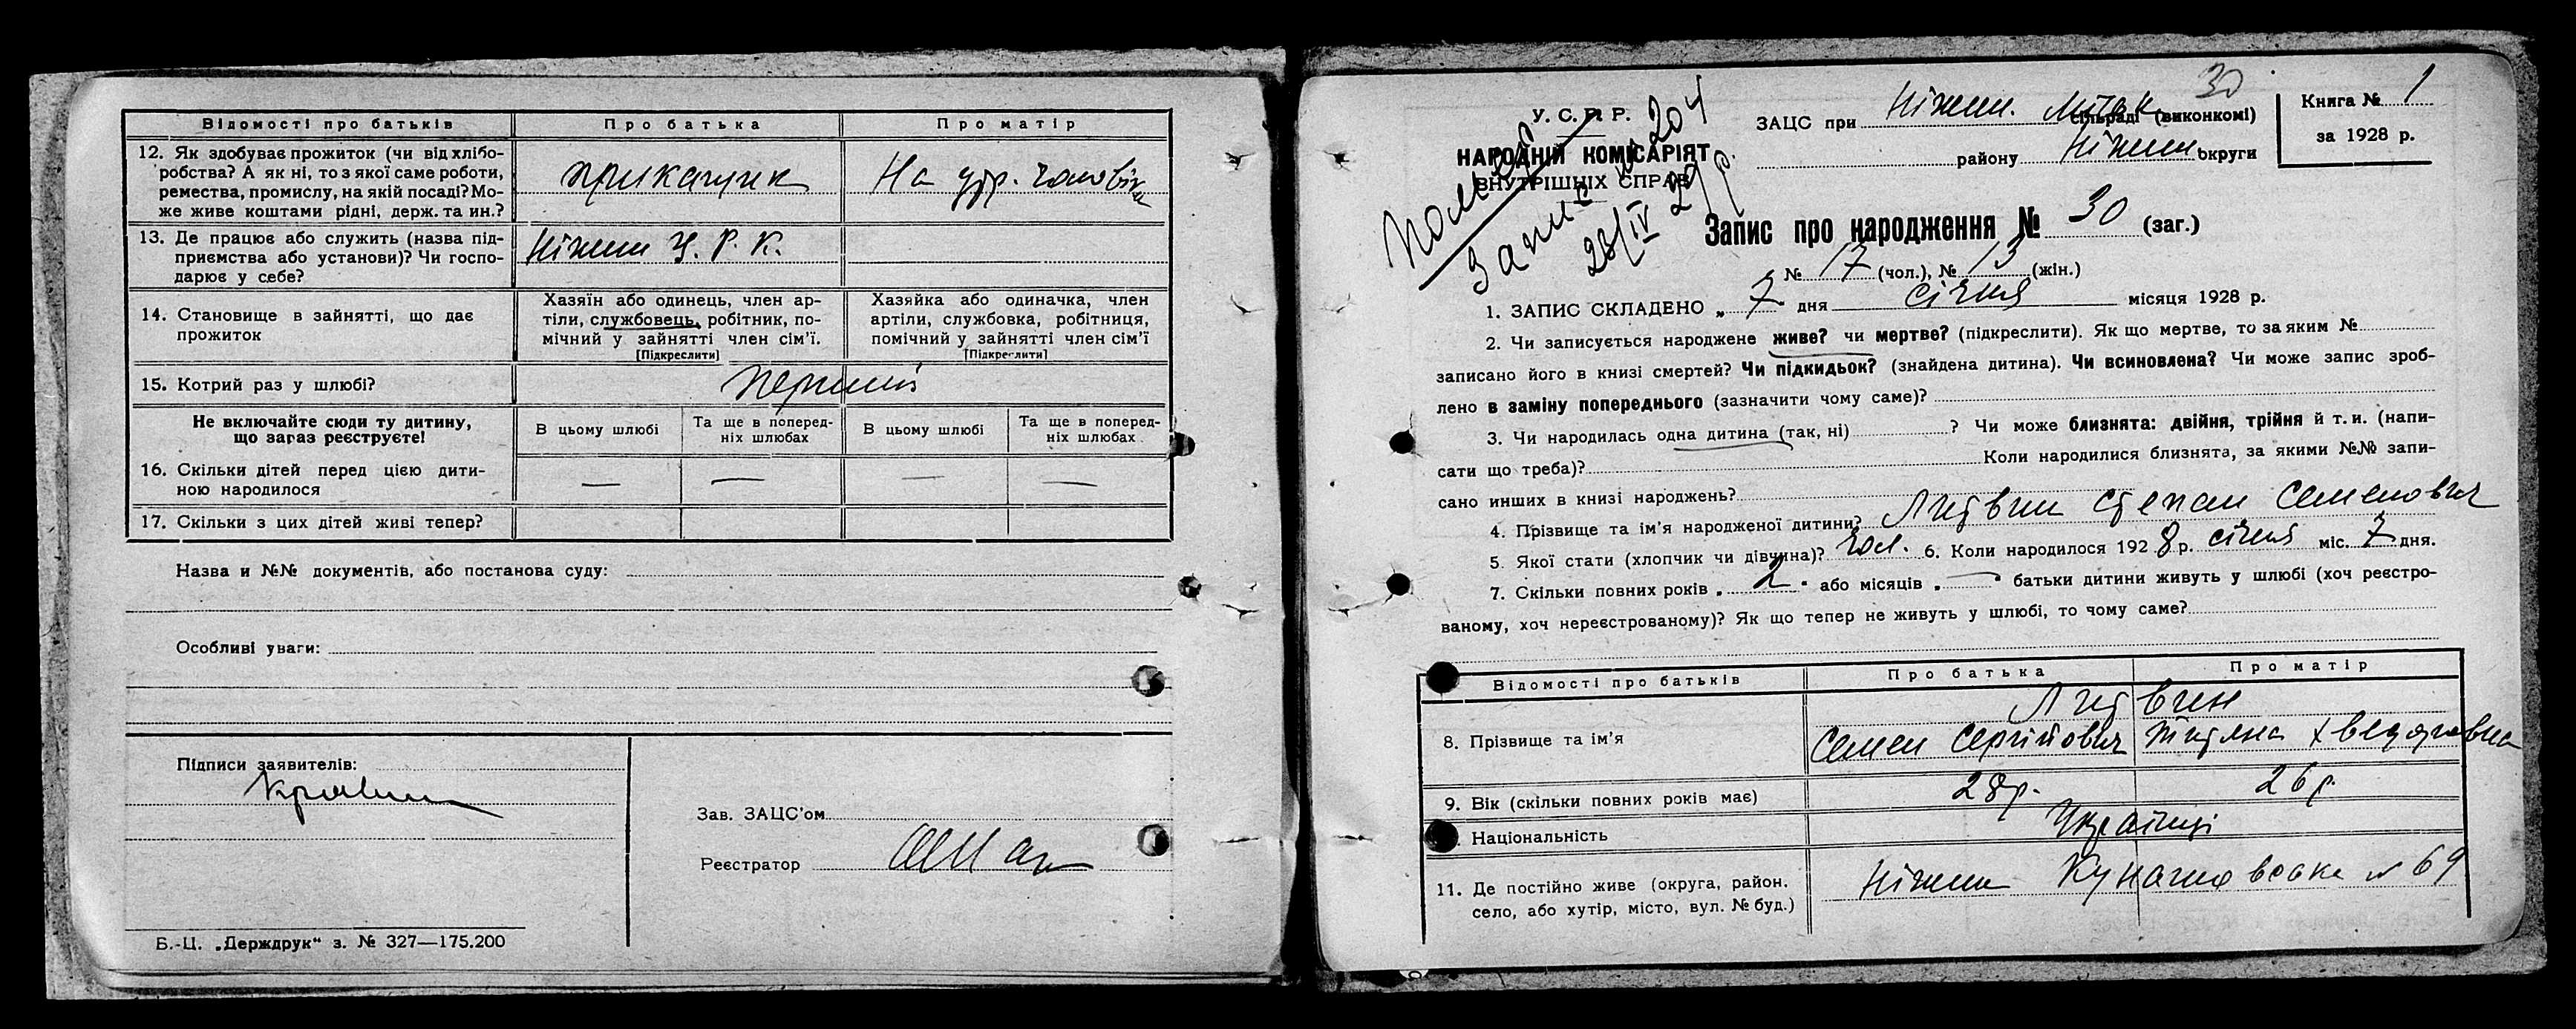 Відомості про батьків Про батька Про матір
12. Як здобуває прожиток (чи від хлібо-
робства? А як ні, то з якої саме роботи,
ремества, промислу, на якій посаді? Мо-
же живе коштами рідні, держ. та ин.?
прикащик На утр. чоловіка
13. Де працює або служить (назва під-
приємства або установи)? Чи госпо-
дарює у себе?
Ніжин Ц. Р. К.
14. Становище в зайнятті, що дає
прожиток
Хазяїн або одинець, член ар-
тіли, службовець, робітник, по-
мічний у зайнятті член сім’ї.
[Підкреслити]
Хазяйка або одиначка, член
артіли, службовка, робітниця,
помічний у зайнятті член сім’ї
[Підкреслити]
15. Котрий раз у шлюбі? перший
Не включайте сюди ту дитину,
що зараз реєструєте!
В цьому шлюбі
Та ще в поперед-
ніх шлюбах
В цьому шлюбі
Та ще в поперед-
ніх шлюбах.
16. Скільки дітей перед цією дити-
ною народилося — — — —
17. Скільки з цих дітей живі тепер?
Назва и №№ документів, або постанова суду:
Особливі уваги:
Підписи заявителів:
Зав. ЗАЦС’ом
Реєстратор
Б.-Ц. „Держдрук“ з. № 327—175.200
30
У. С. Р. Р.
НАРОДНІЙ КОМІСАРІЯТ
ВНУТРІШНІХ СПРАВ
Помер
Запис № 204
28/IV 29 р.
ЗАЦС при Ніжин. сільраді (виконкомі)
району Ніжин округи
Книга № 1
за 1928 р.
Запис про народження № 30 (заг.)
№ 17 (чол.), № 13 (жін.)
1. ЗАПИС СКЛАДЕНО „ 7 “ дня січня місяця 1928 р.
2. Чи записується народжене живе? чи мертве? (підкреслити). Як що мертве, то за яким №
записано його в книзі смертей? Чи підкидьок? (знайдена дитина). Чи всиновлена? Чи може запис зроб-
лено в заміну попереднього (зазначити чому саме)?
3. Чи народилась одна дитина (так, ні) ? Чи може близнята: двійня, трійня й т. и. (напи-
сати що треба)? Коли народилися близнята, за якими №№ запи-
сано инших в книзі народжень?
4. Прізвище та ім’я народженої дитини? Литвин Степан Семенович
5. Якої стати (хлопчик чи дівчина)? чол. 6. Коли народилося 1928 р. січня міс. 7 дня.
7. Скільки повних років „ 2 “ або місяців „ — “ батьки дитини живуть у шлюбі (хоч реєстро-
ваному, хоч нереєстрованому)? Як що тепер не живуть у шлюбі, то чому саме?
Відомості про батьків Про батька Про матір
Литвин
8. Прізвище та ім’я Семен Сергійович Тетяна
9. Вік (скільки повних років має) 28 р. 26 р.
Національність Українці
11. Де постійно живе (округа, район.
село, або хутір, місто, вул. № буд.)
Ніжин Кунашовська № 69